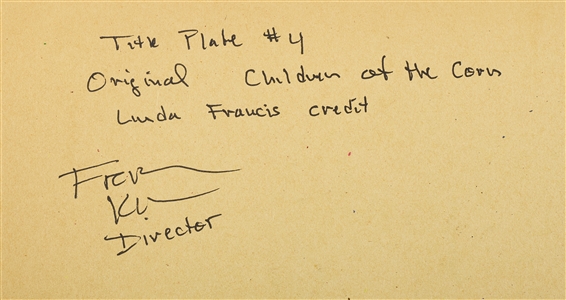 Title Plate #4
Original Children of the Corn
Linda Francis credit
Director